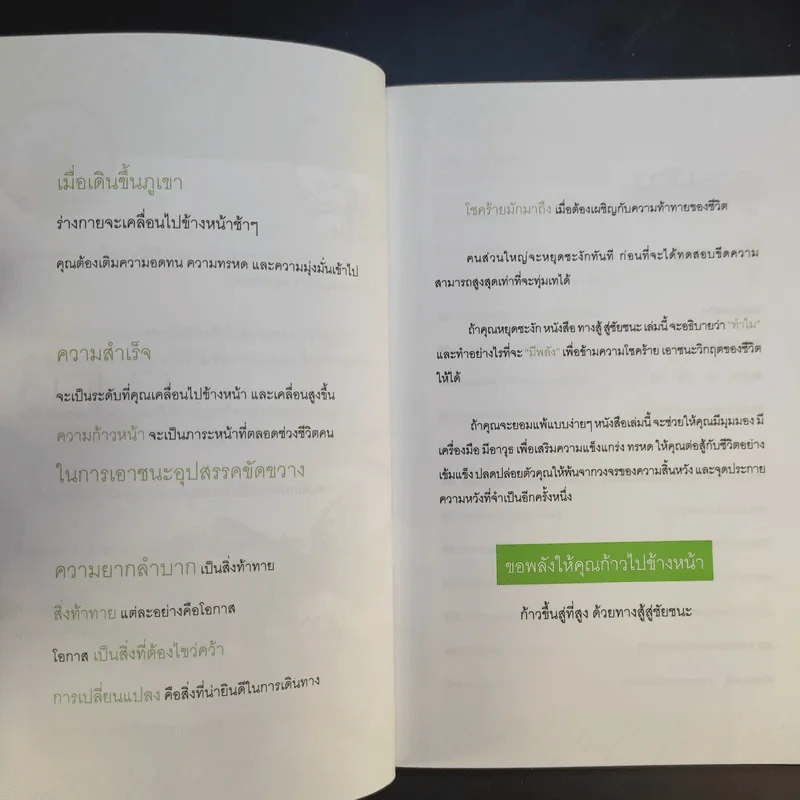 เมื่อเดินขึ้นภูเขา
ร่างกายจะเคลื่อนไปข้างหน้าช้าๆ
คุณต้องเติมความอดทน ความทรหด และความมุ่งมั่นเข้าไป
ความสำเร็จ
จะเป็นระดับที่คุณเคลื่อนไปข้างหน้า และเคลื่อนสูงขึ้น
ความก้าวหน้า จะเป็นภาระหน้าที่ตลอดช่วงชีวิตคน
ในการเอาชนะอุปสรรคขัดขวาง
ความยากลำบาก เป็นสิ่งท้าทาย
สิ่งท้าทาย แต่ละอย่างคือโอกาส
โอกาส เป็นสิ่งที่ต้องไขว่คว้า
การเปลี่ยนแปลง คือสิ่งที่น่ายินดีในการเดินทาง
โชคร้ายมักมาถึง เมื่อต้องเผชิญกับความท้าทายของชีวิต
คนส่วนใหญ่จะหยุดชะงักทันที ก่อนที่จะได้ทดสอบขีดความ
สามารถสูงสุดเท่าที่จะทุ่มเทได้
ถ้าคุณหยุดชะงัก หนังสือ ทางสู้ สู่ชัยชนะ เล่มนี้ จะอธิบายว่า "ทำไม"
และทำอย่างไรที่จะ "มีพลัง" เพื่อข้ามความโชคร้าย เอาชนะวิกฤตของชีวิต
ให้ได้
ถ้าคุณจะยอมแพ้แบบง่ายๆ หนังสือเล่มนี้ จะช่วยให้คุณมีมุมมอง มี
เครื่องมือ มีอาวุธ เพื่อเสริมความแข็งแกร่ง ทรหด ให้คุณต่อสู้กับชีวิตอย่าง
เข้มแข็ง ปลดปล่อยตัวคุณให้พ้นจากวงจรของความสิ้นหวัง และจุดประกาย
ความหวังที่จำเป็นอีกครั้งหนึ่ง
ขอพลังให้คุณก้าวไปข้างหน้า
ก้าวขึ้นสู่ที่สูง ด้วยทางสู้สู่ชัยชนะ